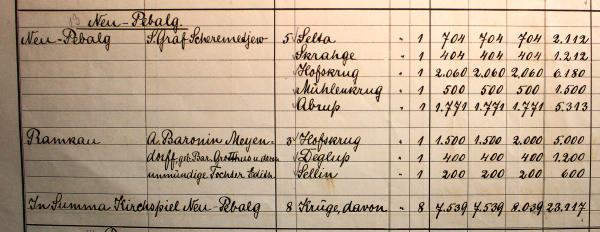 Neu-Pebalg.
Neu-Pebalg S. Graf Scheremetjew 5 Selta " 1 704 704 704 2.112
Skrahge " 1 404 404 404 1.212
Hofskrug " 1 2.060 2.060 2.060 6.180
Mühlenkrug " 1 500 500 500 1.500
Abrup " 1 1.771 1.771 1.771 5.313
Ramkau A. Baronin Meyen- 3 Hofskrug " 1 1.500 1.500 2.000 5.000
dorff geb. Bar. Grotthus u. deren Deglup " 1 400 400 400 1.200
unmündige Tochter Edith Sellin " 1 200 200 200 600
In Summa Kirchspiel Neu-Pebalg 8 Krüge, davon " 8 7.539 7.539 8.039 23.117